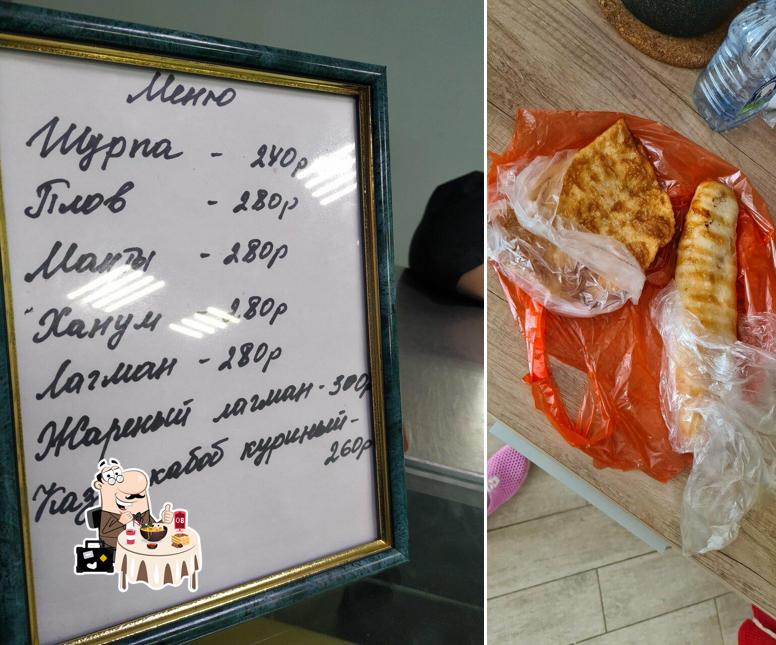 Меню
Шурпа - 240р
Плов - 280р
Манты - 280р
"Ханум - 280р
Лагман - 280р
Жареный лагман - 300р
кабоб куриный -
260р